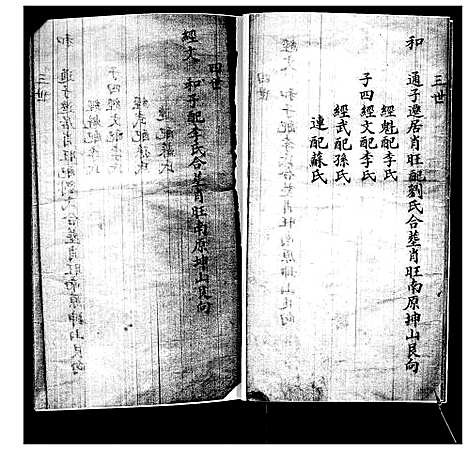 三世
和 通子遷居肖旺配劉氏合塟肖旺南原坤山艮向
經魁配李氏
子四經文配李氏
經武配孫氏
連配蘇氏
四世
經文 和子配李氏合塟肖旺南原坤山艮向